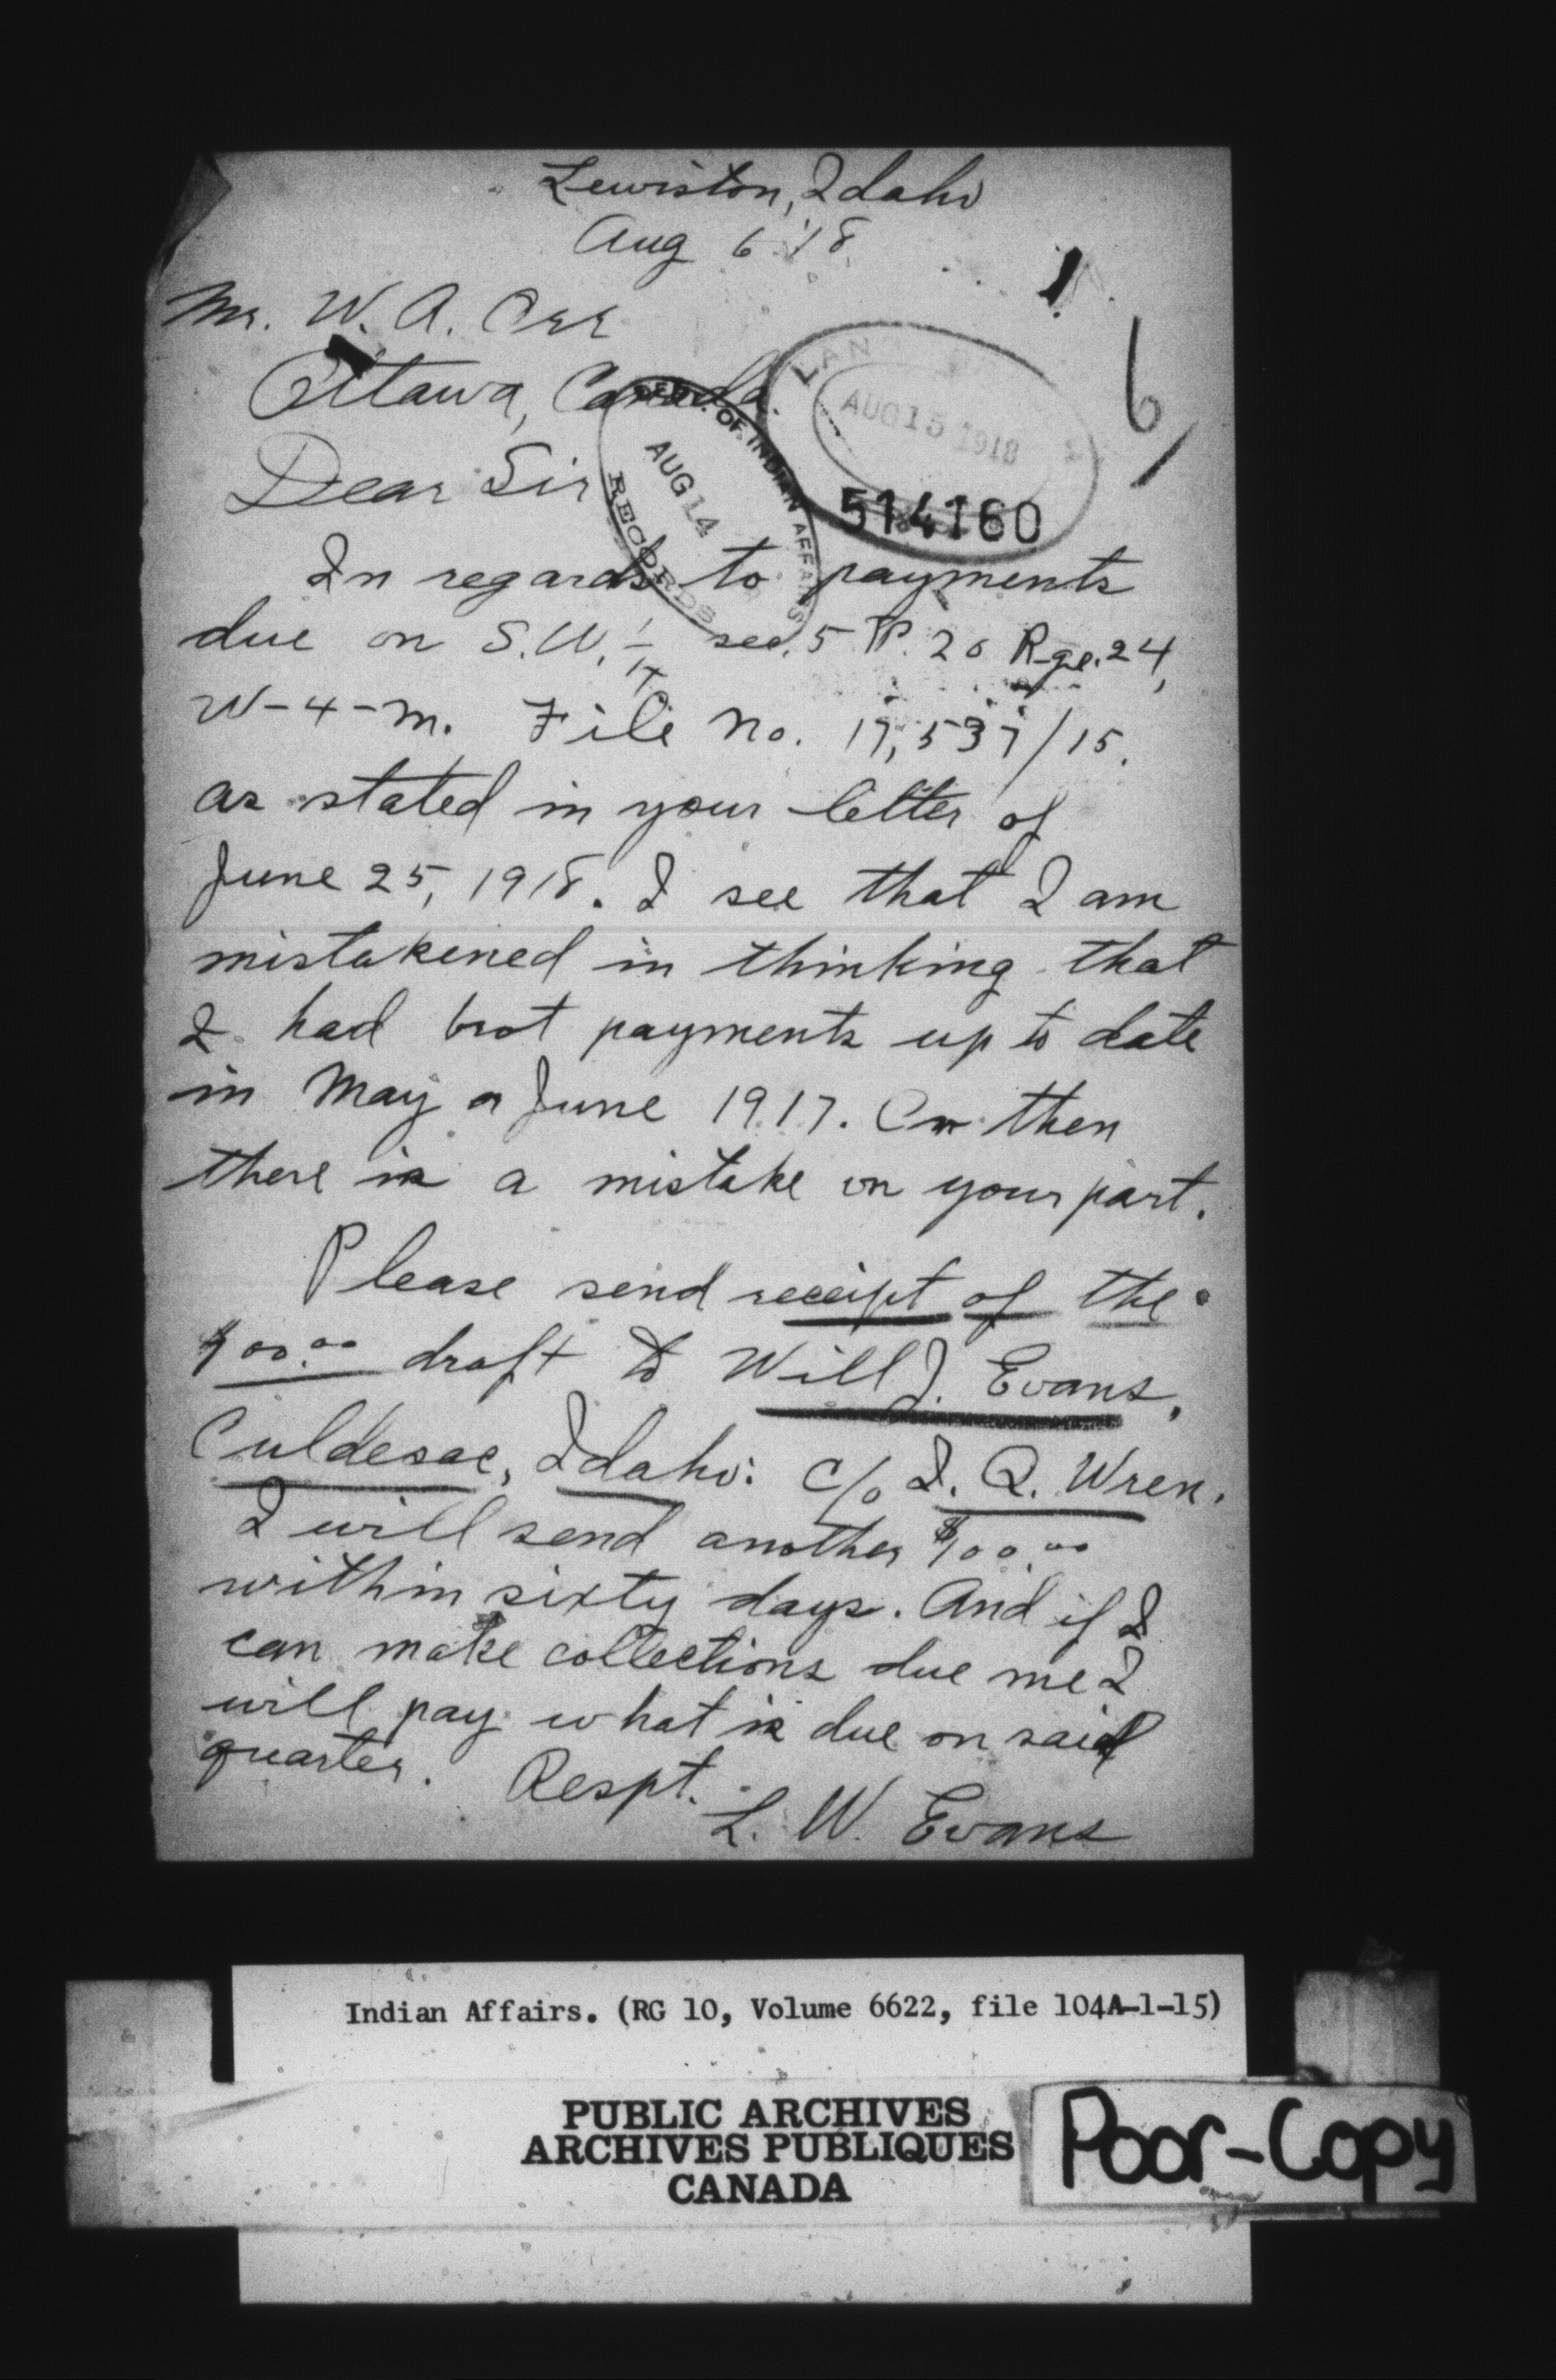 Lewiston, Idaho
Aug 6 '18
Mr. W. A. Orr
Ottawa, Canada.
Dear Sir
LAN
AUG 15 1918
514160
DEPT. OF INDIAN AFFAIRS
AUG 14
RECORDS
6
In regards to payments
due on S.W. 1/4 sec. 5 TP. 20 Rge. 24,
W-4-M. File No. 17,537/15.
as stated in your letter of
June 25, 1918. I see that I am
mistakened in thinking that
I had brot payments up to date
in May or June 1917. Or then
there is a mistake on your part.
Please send receipt of the
$100.00 draft to Will J. Evans,
Culdesac, Idaho: c/o I. Q. Wren.
I will send another $100.00
within sixty days. And if I
can make collections due me I
will pay what is due on said
quarter. Respt.
L. W. Evans
Indian Affairs. (RG 10, Volume 6622, file 104A-1-15)
PUBLIC ARCHIVES
ARCHIVES PUBLIQUES
CANADA
Poor-Copy